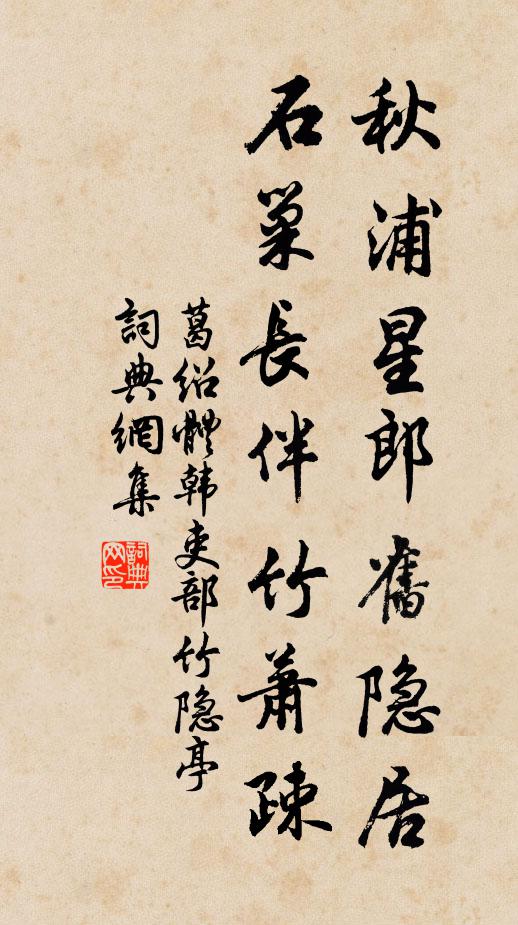 秋浦星郎舊隐居
石巢長伴竹蕭疎
葛绍體韩吏部竹隐亭
詞典網集
詞典
网印